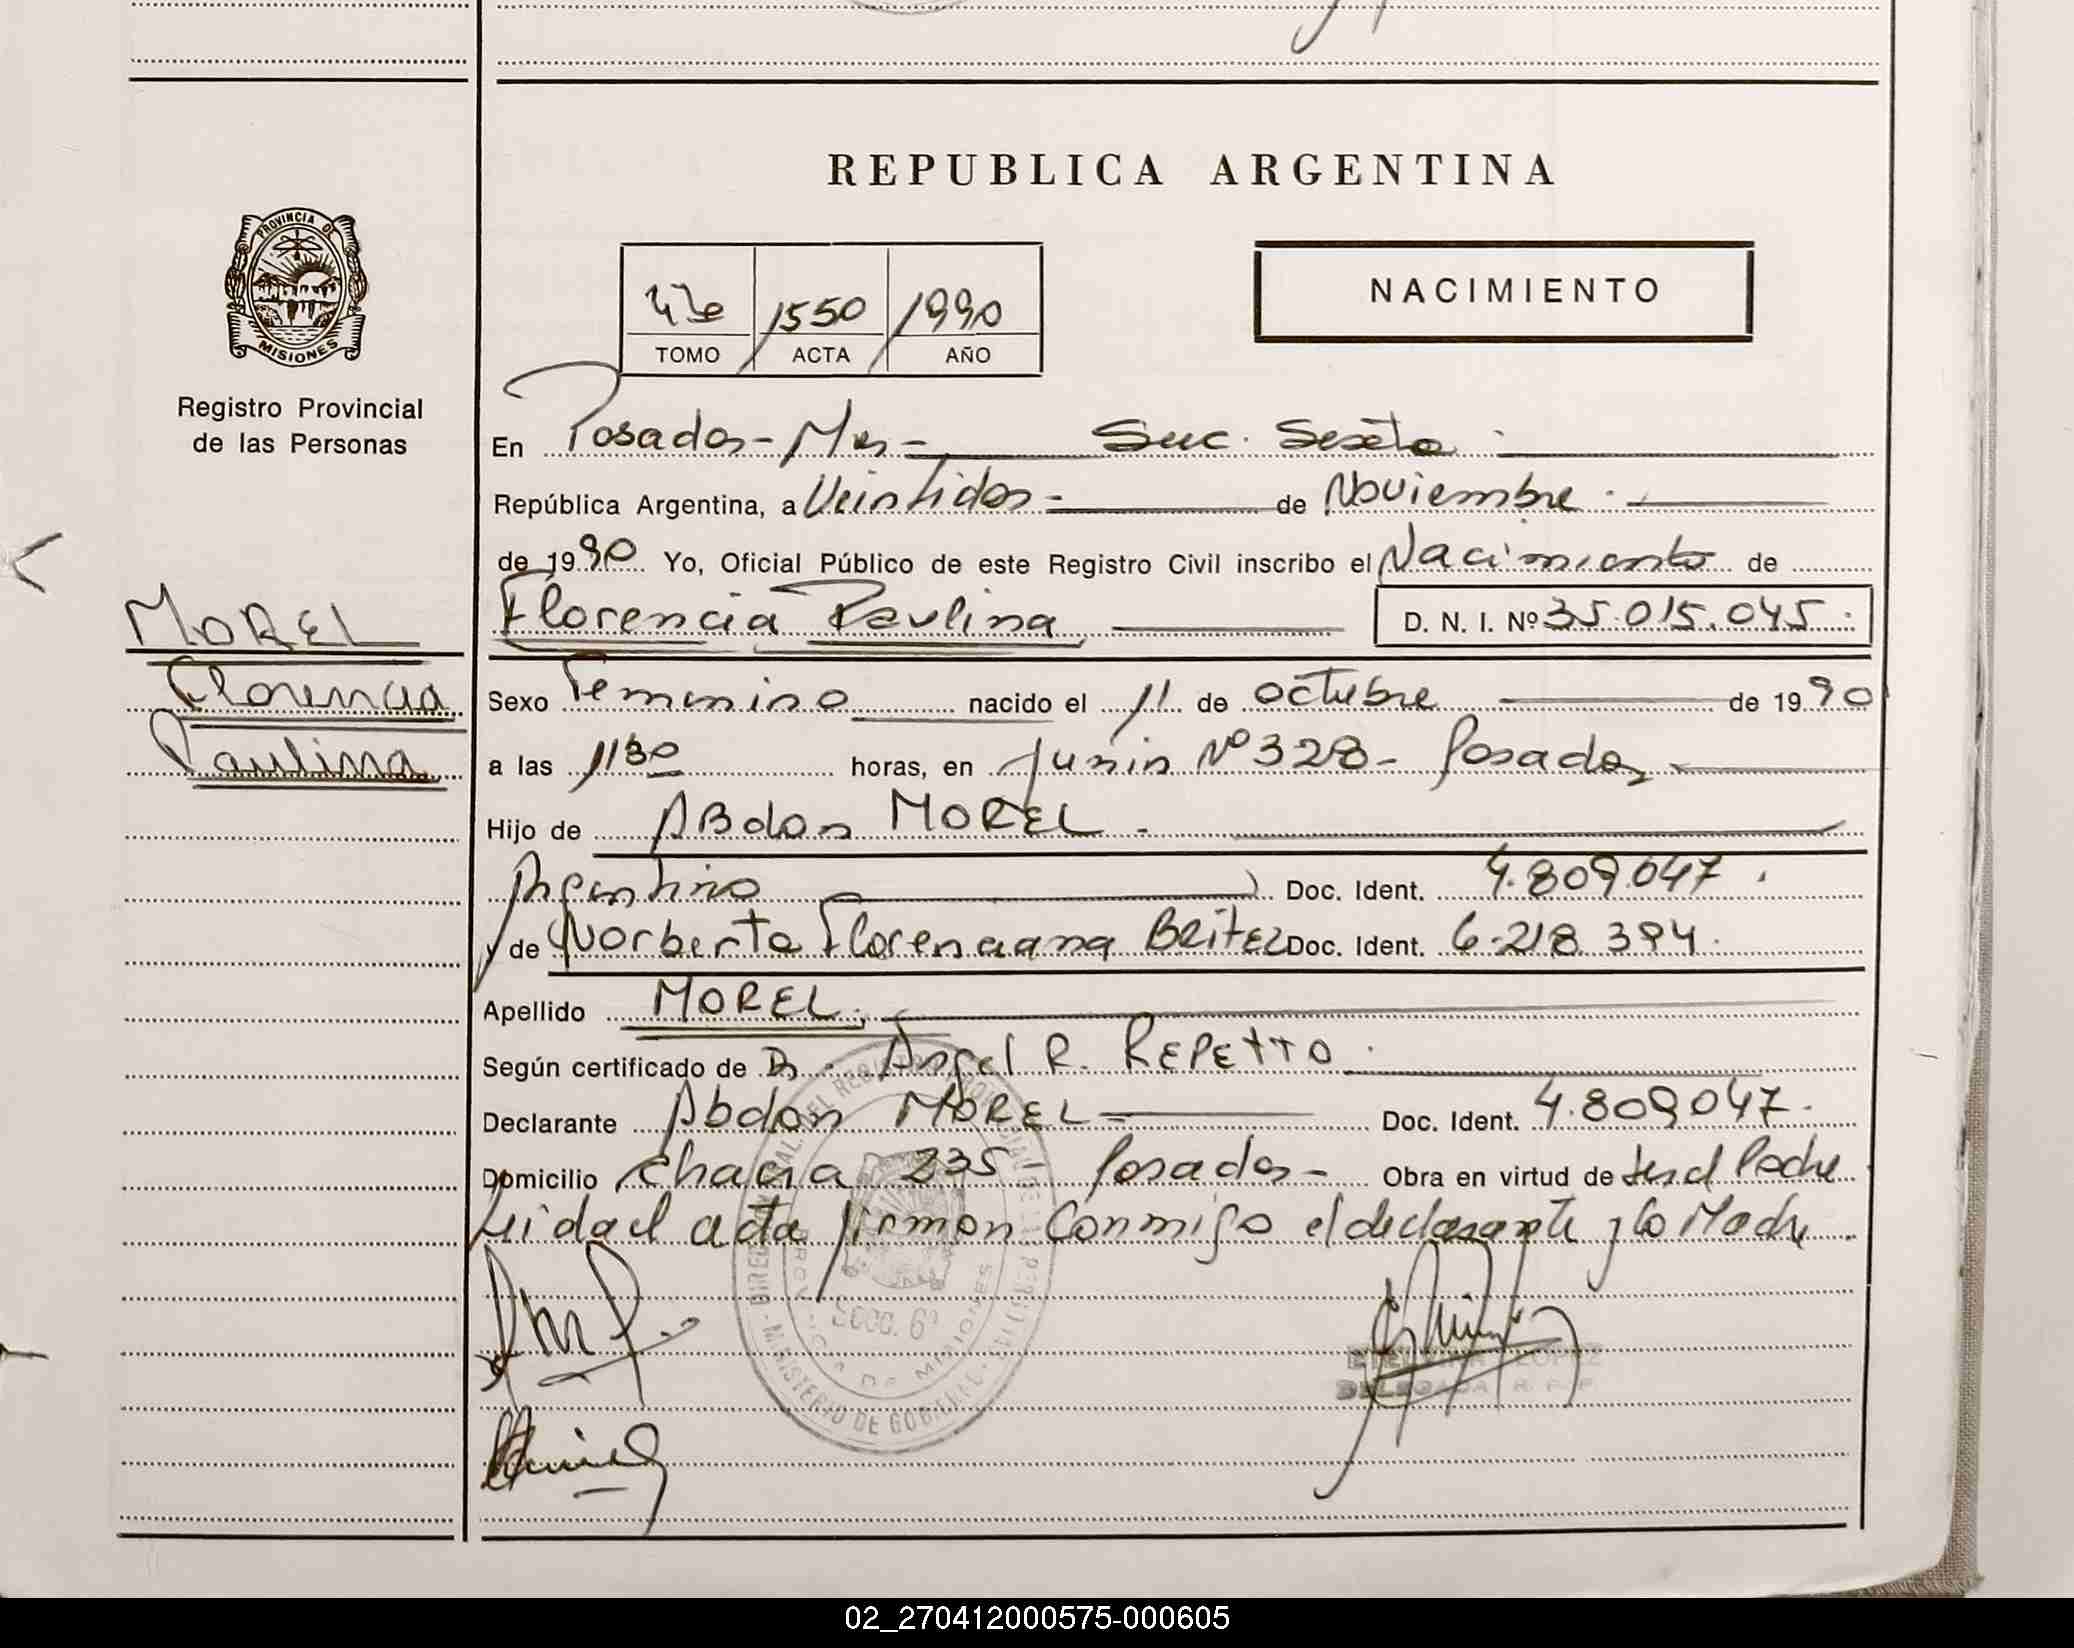 REPUBLICA ARGENTINA
PROVINCIA DE
MISIONES
Registro Provincial
de las Personas
1550 1990
TOMO ACTA AÑO
NACIMIENTO
En Posadas - Mns - Suc. Sexta
República Argentina, a Veintidos - de Noviembre
de 1990 Yo, Oficial Público de este Registro Civil inscribo el Nacimiento de
Florencia Paulina D. N. I. Nº 35.015.045
MOREL
Florencia
Paulina
Sexo Femenino nacido el 11 de octubre de 1990
a las 1130 horas, en Junin Nº 328 - Posadas
Hijo de Abdon MOREL
Argentino Doc. Ident. 4.809.047
y de Norberta Florenciana BRITEZ Doc. Ident. 6.218.394
Apellido MOREL
Según certificado de Dr. Angel R. REPETTO
Declarante Abdon MOREL Doc. Ident. 4.809047
Domicilio Chacra 235 - Posadas - Obra en virtud de ser el Padre
Leida el acta firman Conmigo el declarante y la Madre
SECC. 6ª
PROVINCIA DE MISIONES
MINISTERIO DE GOBIERNO
LOPEZ
DELEGADA R. P. P.
02_270412000575-000605